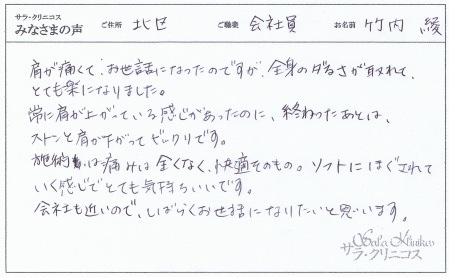 サラ・クリニコス
みなさまの声 ご住所 北区 ご職業 会社員 お名前 竹内 綾
肩が痛くて、お世話になったのですが、全身のダるさが取れて、
とても楽になりました。
常に肩が上がっている感じがあったのに、終わったあとは、
ストンと肩が下がってビックリです。
施術は痛みは全くなく、快適そのもの。ソフトにほぐされて
いく感じでとても気持ちいいです。
会社も近いので、しばらくお世話になりたいと思います。
Sala Klinikos
サラ・クリニコス